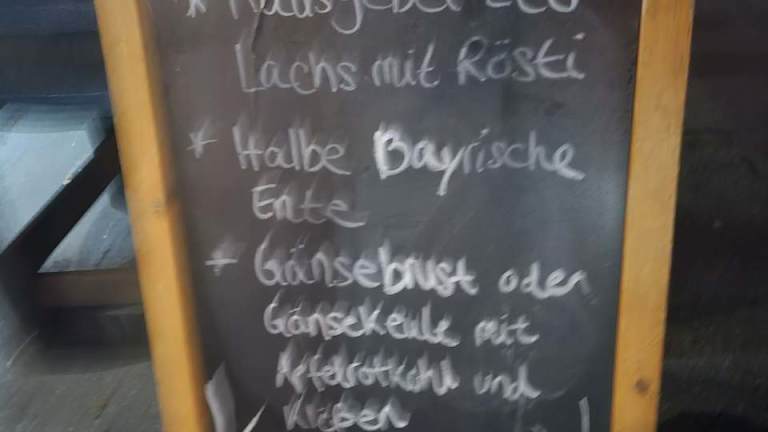 * Hausgebeizter
Lachs mit Rösti
* Halbe Bayrische
Ente
+ Gänsebrust oder
Gänsekeule mit
Apfelrotkohl und
Klößen